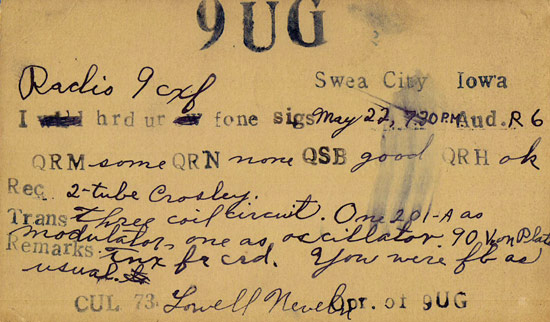 9UG
Radio 9cxf Swea City Iowa
I hrd ur fone sigs May 22, 7:30 P.M. Aud. R6
QRM some QRN none QSB good QRH ok
Rec 2-tube Crosley.
Trans three coil circuit. One 201-A as
modulator, one as oscillator. 90 V on Plate
Remarks: tnx fr crd. You were fb as
usual.
CUL 73. Lowell Opr. of 9UG